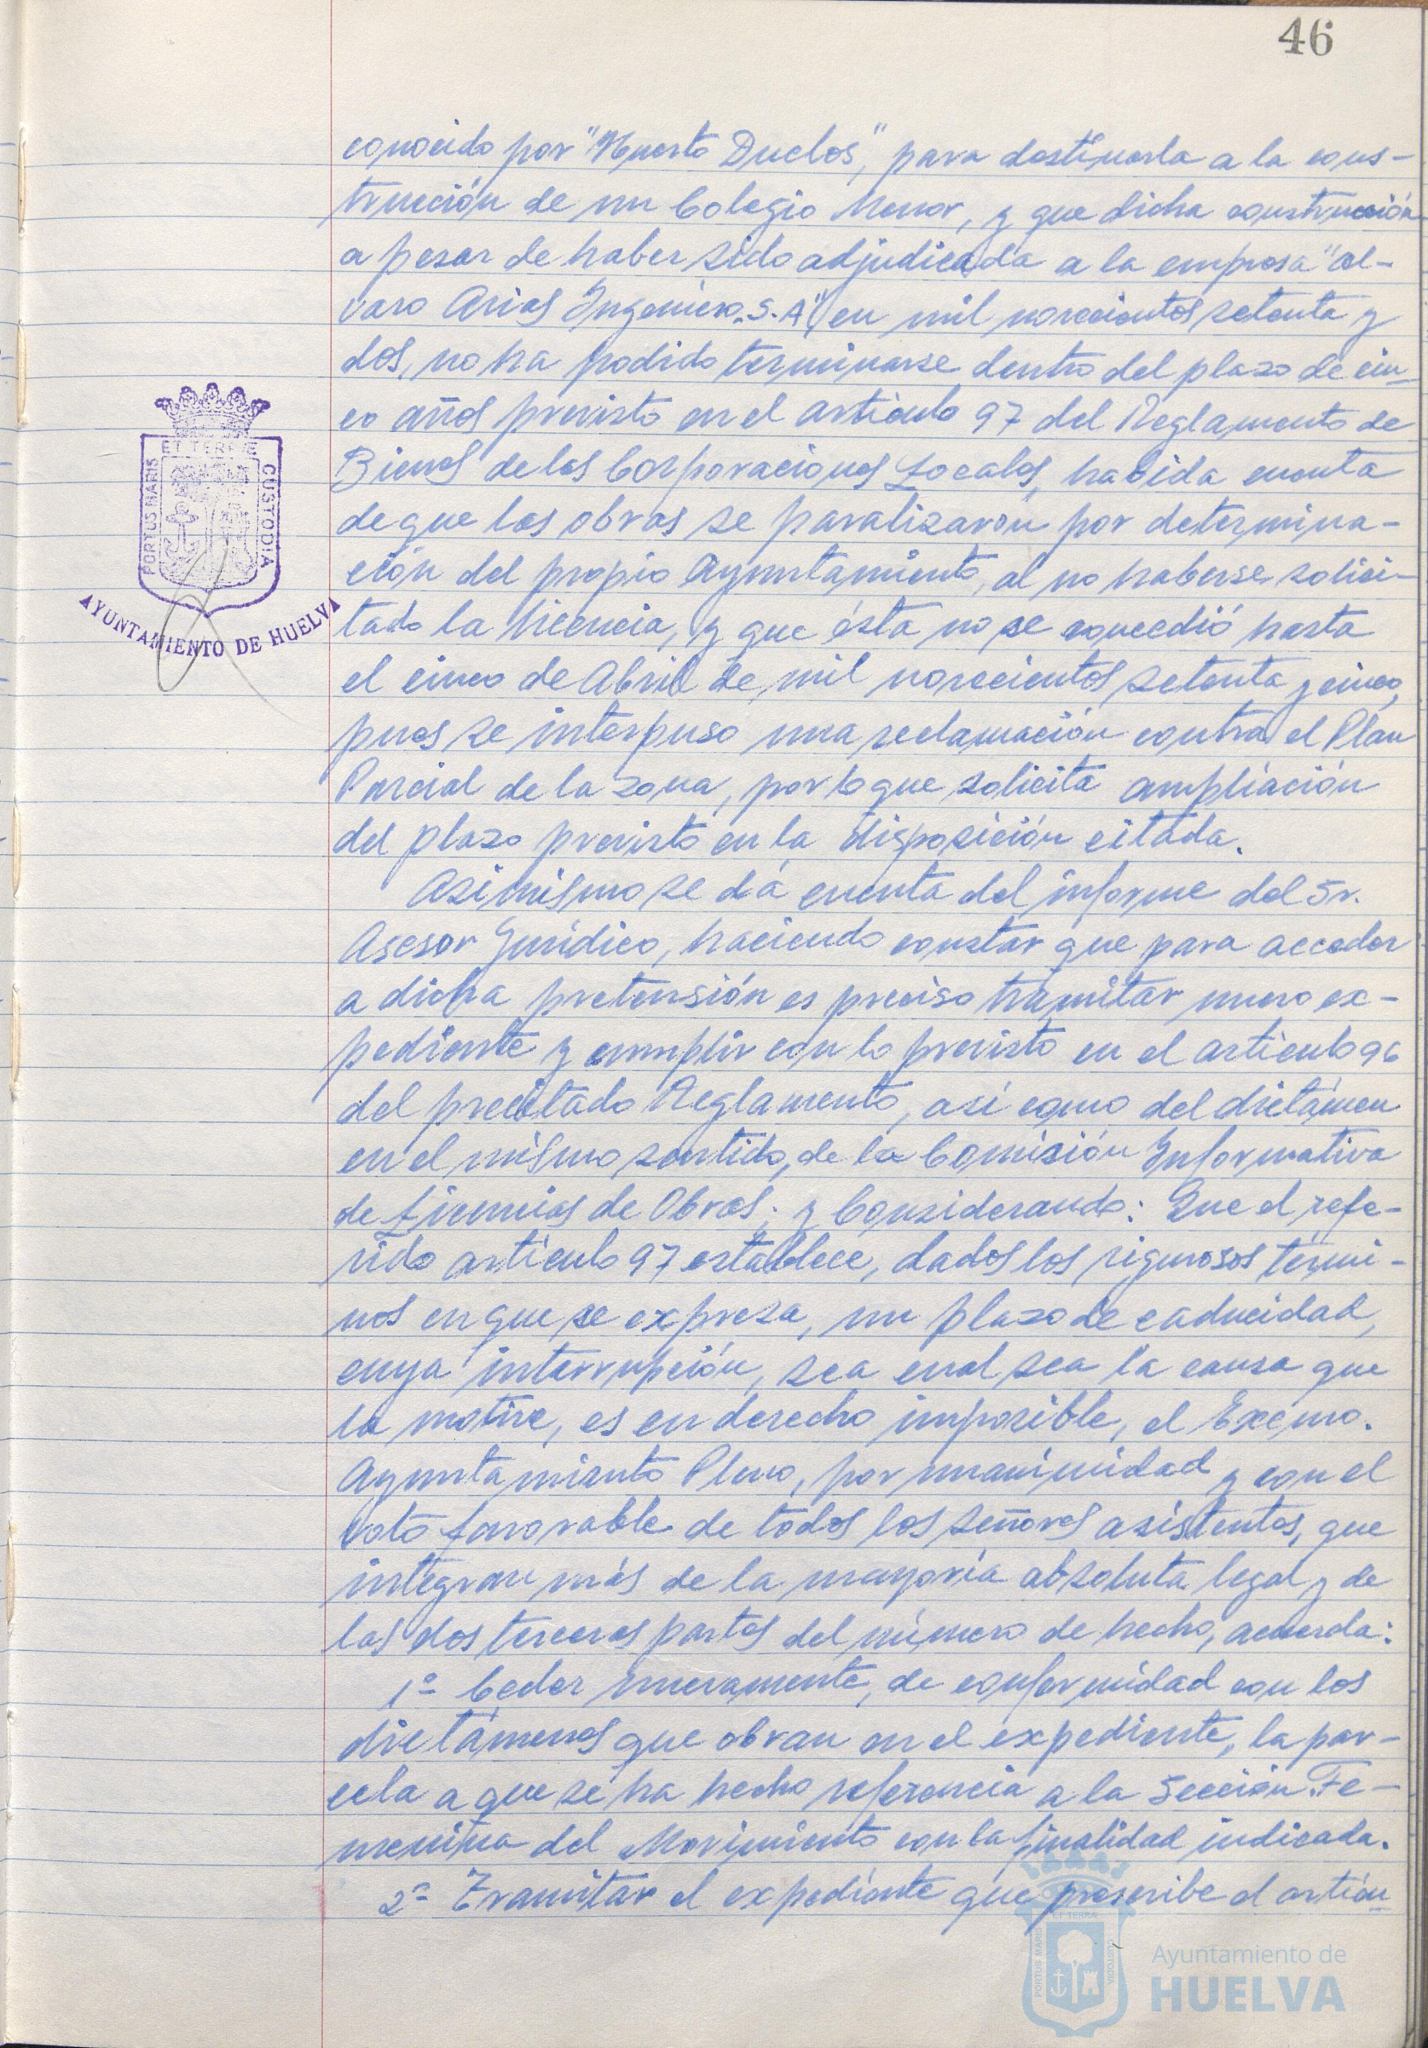 46
conocido por "Huerto Duclos", para destinarla a la cons-
trucción de un Colegio Menor, y que dicha construcción
a pesar de haber sido adjudicada a la empresa "Al-
varo Arias Ingeniero. S. A" en mil novecientos setenta y
dos, no ha podido terminarse dentro del plazo de cin-
co años previsto en el artículo 97 del Reglamento de
Bienes de las Corporaciones Locales, habida cuenta
de que las obras se paralizaron por determina-
ción del propio Ayuntamiento, al no haberse solici-
tado la licencia, y que ésta no se concedió hasta
el cinco de Abril de mil novecientos setenta y cinco,
pues se interpuso una reclamación contra el Plan
Parcial de la zona, por lo que solicita ampliación
del plazo previsto en la disposición citada.
Asimismo se dá cuenta del informe del Sr.
Asesor Jurídico, haciendo constar que para acceder
a dicha pretensión es preciso tramitar nuevo ex-
pediente y cumplir con lo previsto en el artículo 96
del precitado Reglamento, así como del dictámen
en el mismo sentido, de la Comisión Informativa
de Licencias de Obras; y Considerando: Que el refe-
rido artículo 97 establece, dados los rigurosos térmi-
nos en que se expresa, un plazo de caducidad,
cuya interrupción, sea cual sea la causa que
la motive, es en derecho imposible, el Excmo.
Ayuntamiento Pleno, por unanimidad y con el
voto favorable de todos los señores asistentes, que
integran más de la mayoría absoluta legal y de
las dos terceras partes del número de hecho, acuerda:
1º- Ceder nuevamente, de conformidad con los
dictámenes que obran en el expediente, la par-
cela a que se ha hecho referencia a la Sección Fe-
menina del Movimiento con la finalidad indicada.
2º- Tramitar el expediente que prescribe el artícu-
PORTUS MARIS
ET TERRAE
CUSTODIA
AYUNTAMIENTO DE HUELVA
PORTUS MARIS
ET TERRAE
CUSTODIA
Ayuntamiento de
HUELVA